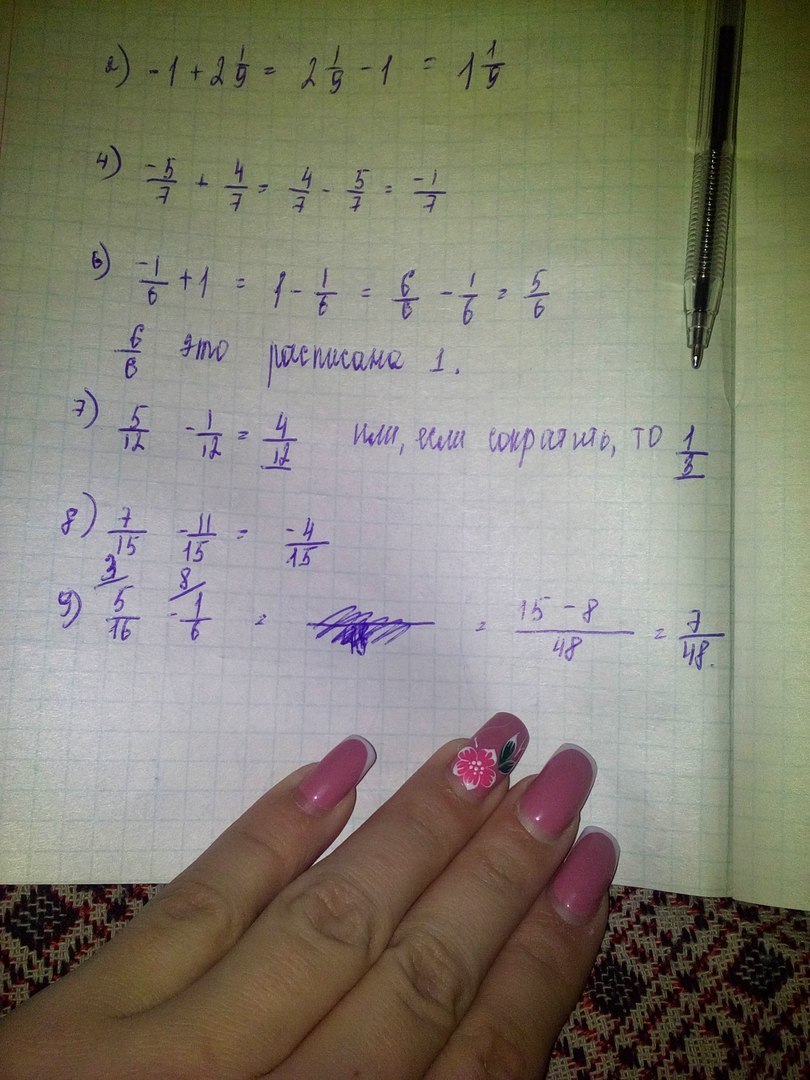 2) -1 + 2 1/9 = 2 1/9 - 1 = 1 1/9
4) -5/7 + 4/7 = 4/7 - 5/7 = -1/7
6) -1/6 + 1 = 1 - 1/6 = 6/6 - 1/6 = 5/6
6/6 это расписана 1.
7) 5/12 - 1/12 = 4/12 или, если сократить, то 1/3
8) 7/15 - 11/15 = -4/15
3/ 8/
9) 5/16 - 1/6 = = 15 - 8/48 = 7/48.